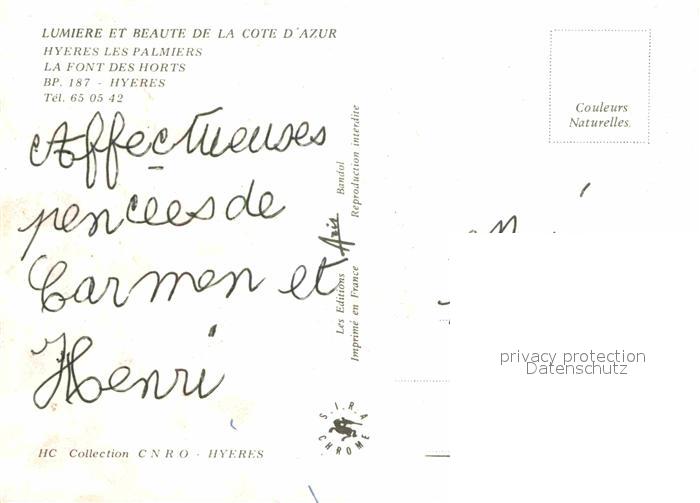 LUMIERE ET BEAUTE DE LA COTE D'AZUR
HYERES LES PALMIERS
LA FONT DES HORTS
BP. 187 - HYERES
Tél. 65 05 42
Affectueuses
pencées de
Carmen et
Henri
HC Collection C N R O - HYERES
Les Editions Aris Bandol
Imprimé en France Reproduction interdite
S.I.R.A.
CHROME
Couleurs
Naturelles.
privacy protection
Datenschutz